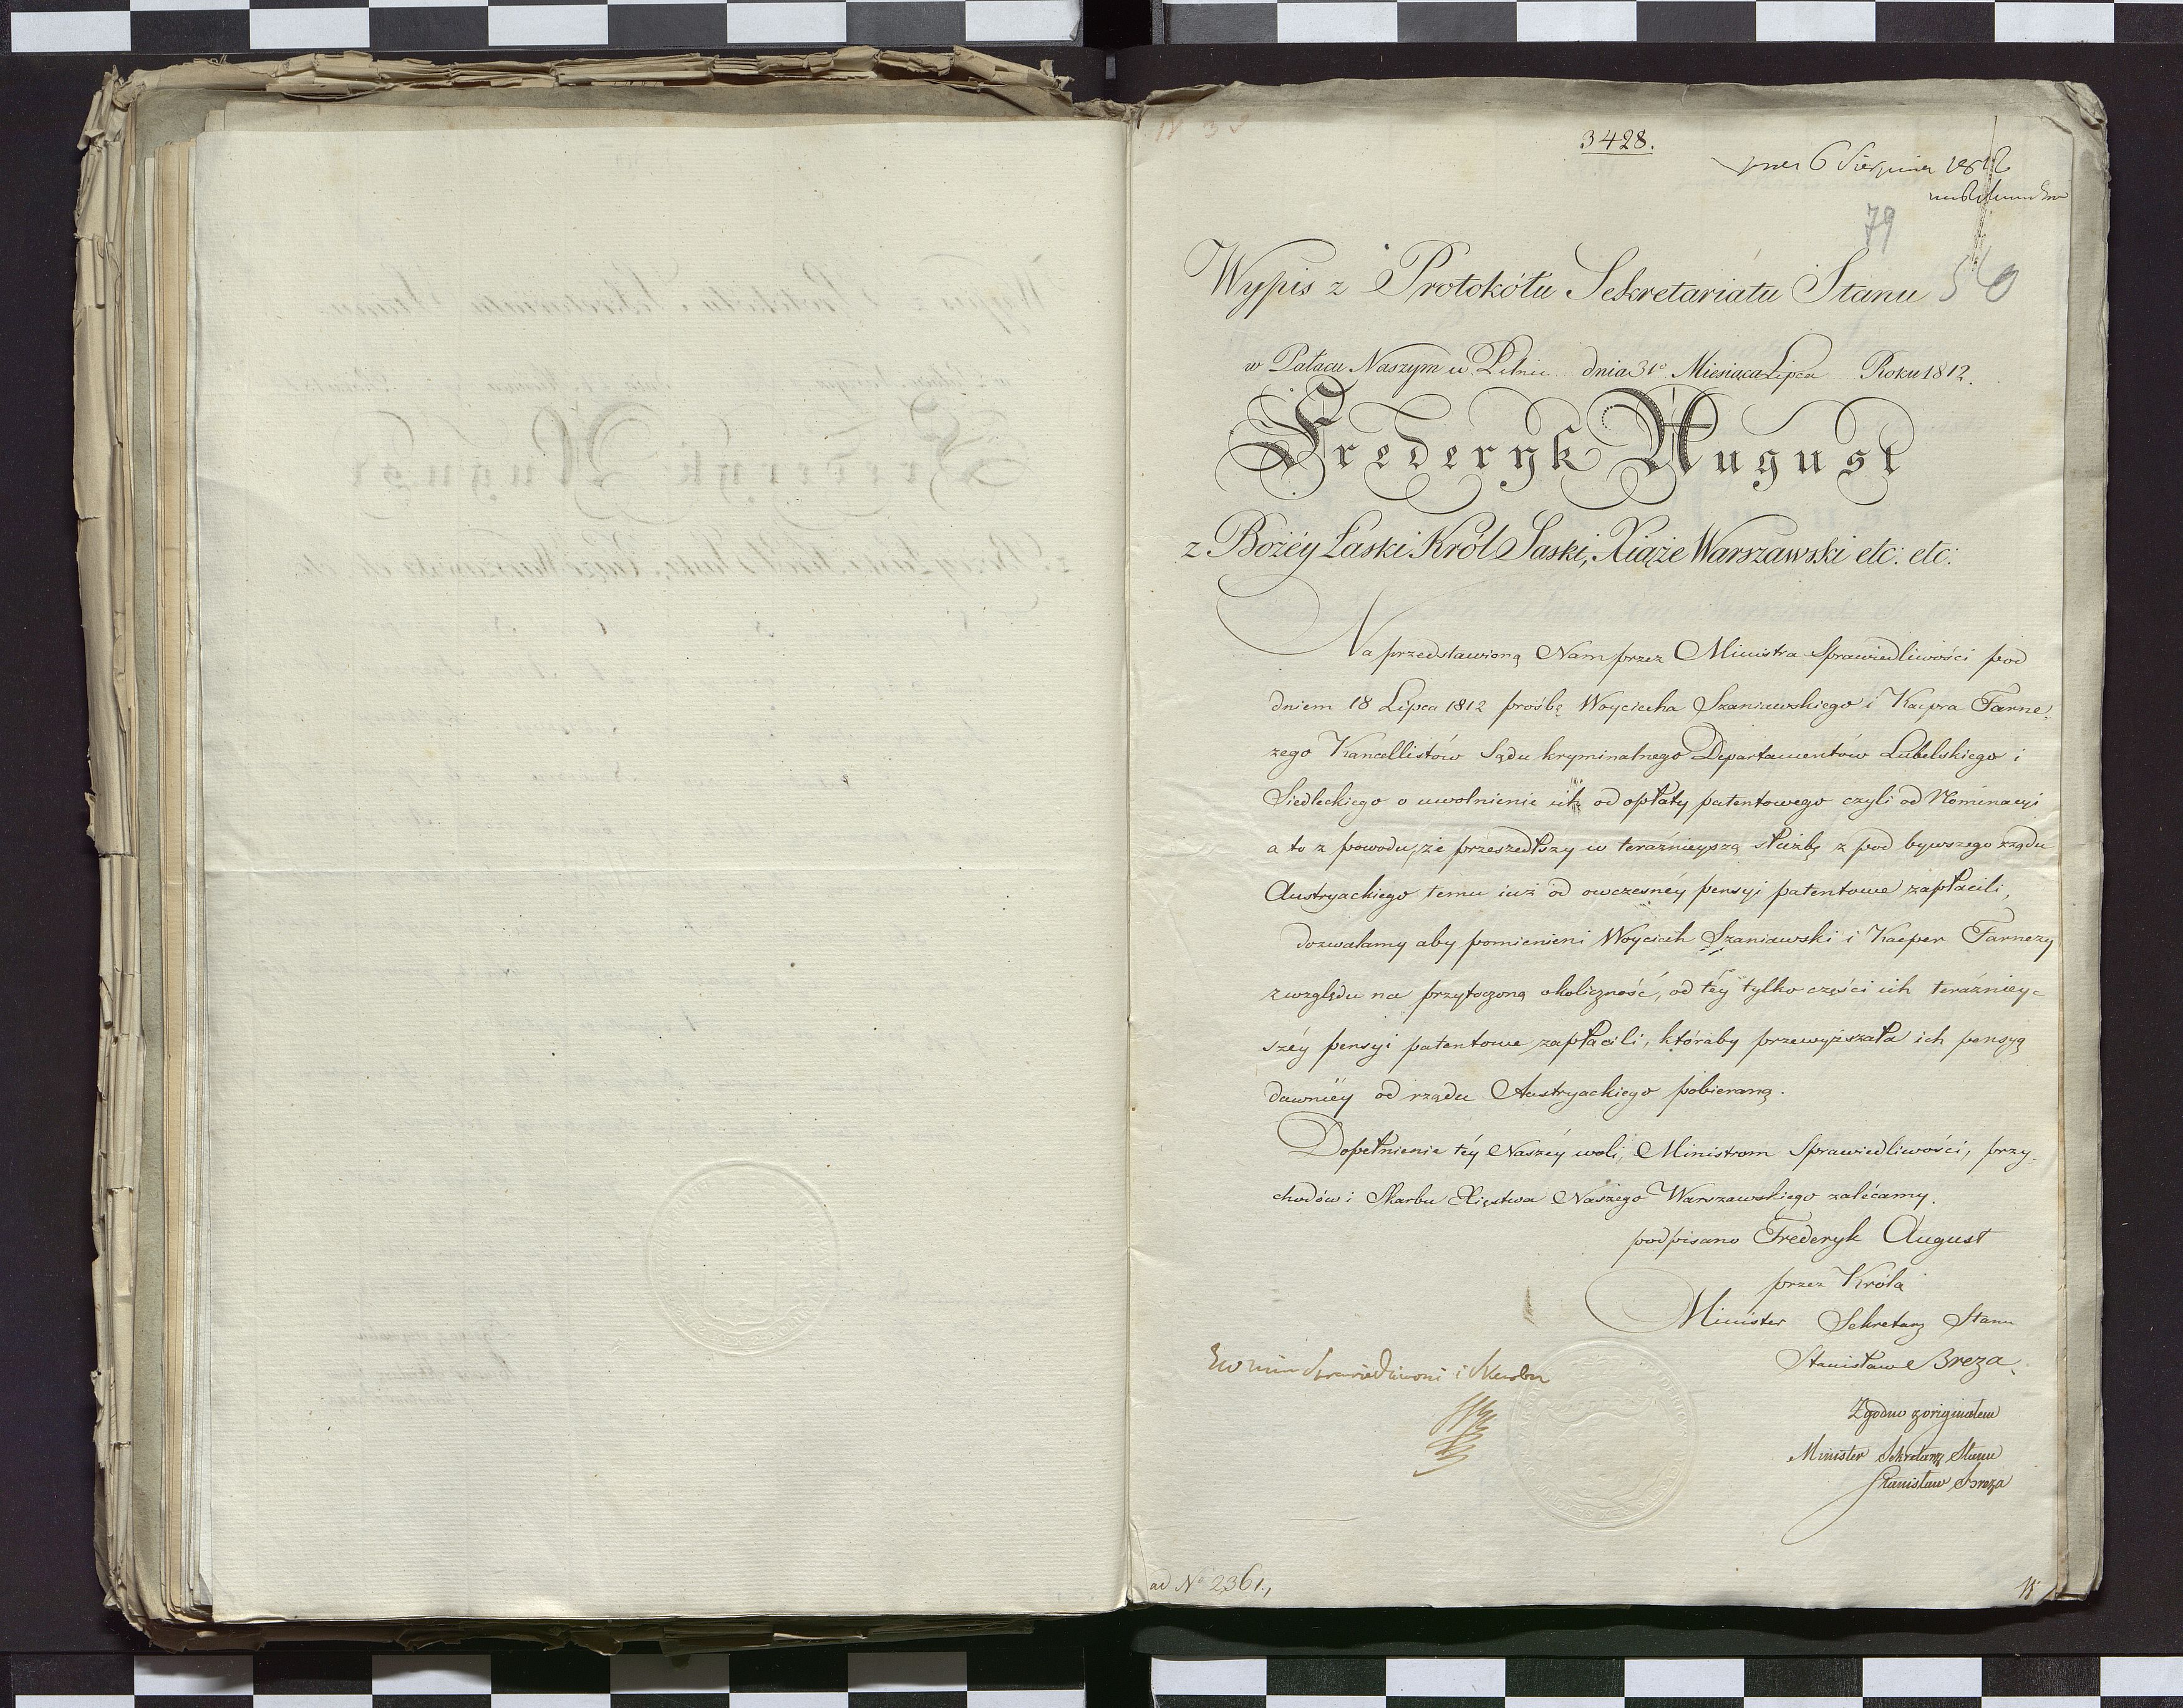 3428.
6 Sierpnia 1812
79
50
Wypis z Protokółu Sekretariatu Stanu
w Pałacu Naszym w Pilnic dnia 31º Miesiąca Lipca Roku 1812.
Frederyk August
z Bożéy Łaski Król Saski, Xiąże Warszawski etc: etc:
Na przedstawioną Nam przez Ministra Sprawiedliwości pod
dniem 18 Lipca 1812 prośbę Woyciecha Szaniawskiego i Kacpra Farne-
zego Kancellistów Sądu kryminalnego Departamentów Lubelskiego i
Siedleckiego o uwolnienie ich od opłaty patentowego czyli od Nominacyi
a to z powodu, że przeszedłszy w teraźnieyszą służbę z pod bywszego rządu
Austryackiego temu iuż od owczesnéy pensyi patentowe zapłacili,
dozwalamy aby pomienieni Woyciech Szaniawski i Kacper Farnezy
z względu na przytoczoną okoliczność, od téy tylko części ich teraźniey-
széy pensyi patentowe zapłacili, któraby przewyższała ich pensyą
dawniéy od rządu Austryackiego pobieraną.
Dopełnienie téy Naszéy woli, Ministrom Sprawiedliwości, przy-
chodów i Skarbu Xięstwa Naszego Warszawskiego zalécamy.
podpisano Frederyk August
przez Króla
Minister Sekretarz Stanu
Stanisław Breza
Zgodno z originałem
Minister Sekretarz Stanu
Stanisław Breza
Sprawiedliwości i Skarbu
ad Nº 2361.,